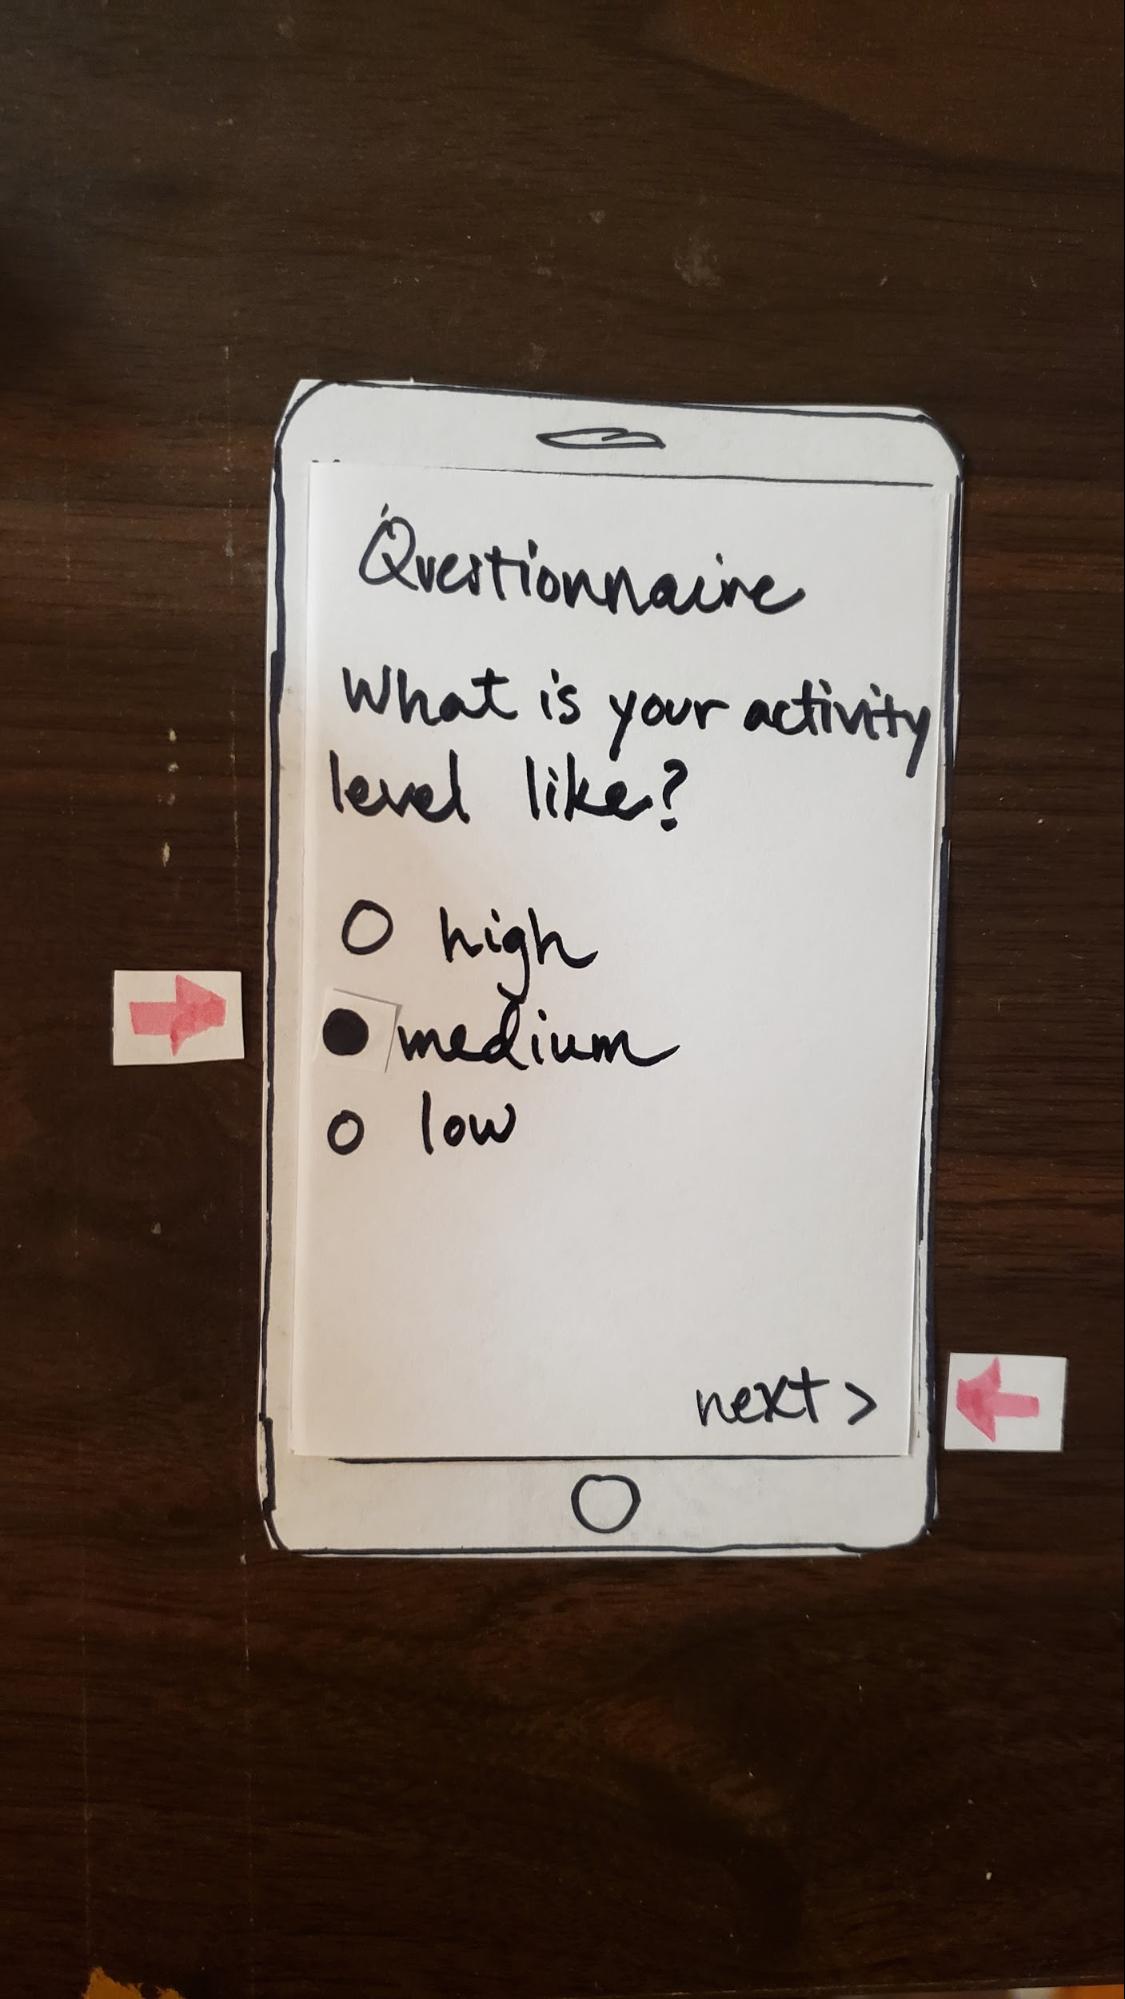 Questionnaire
What is your activity
level like?
high
medium
low
next >